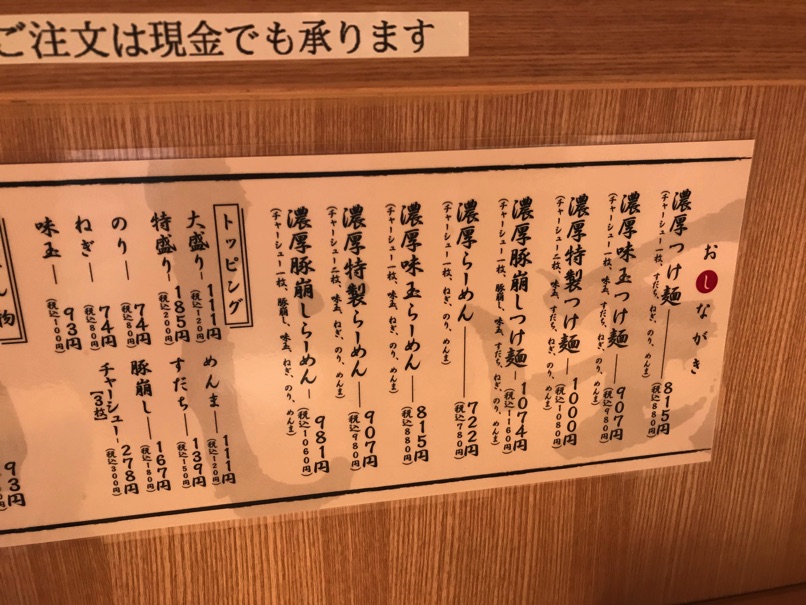 ご注文は現金でも承ります
おしながき
濃厚つけ麺 815円
(税込880円)
(チャーシュー一枚、すだち、ねぎ、のり、めんま)
濃厚味玉つけ麺 907円
(税込980円)
(チャーシュー一枚、味玉、すだち、ねぎ、のり、めんま)
濃厚特製つけ麺 1000円
(税込1080円)
(チャーシュー二枚、味玉、すだち、ねぎ、のり、めんま)
濃厚豚崩しつけ麺 1074円
(税込1160円)
(チャーシュー一枚、豚崩し、味玉、すだち、ねぎ、のり、めんま)
濃厚らーめん 722円
(税込780円)
(チャーシュー一枚、ねぎ、のり、めんま)
濃厚味玉らーめん 815円
(税込880円)
(チャーシュー一枚、味玉、ねぎ、のり、めんま)
濃厚特製らーめん 907円
(税込980円)
(チャーシュー二枚、味玉、ねぎ、のり、めんま)
濃厚豚崩しらーめん 981円
(税込1060円)
(チャーシュー一枚、豚崩し、味玉、ねぎ、のり、めんま)
トッピング
大盛り 111円
(税込120円)
特盛り 185円
(税込200円)
のり 74円
(税込80円)
ねぎ 74円
(税込80円)
味玉 93円
(税込100円)
めんま 111円
(税込120円)
すだち 139円
(税込150円)
豚崩し 167円
(税込180円)
チャーシュー 278円
[3枚] (税込300円)
93円